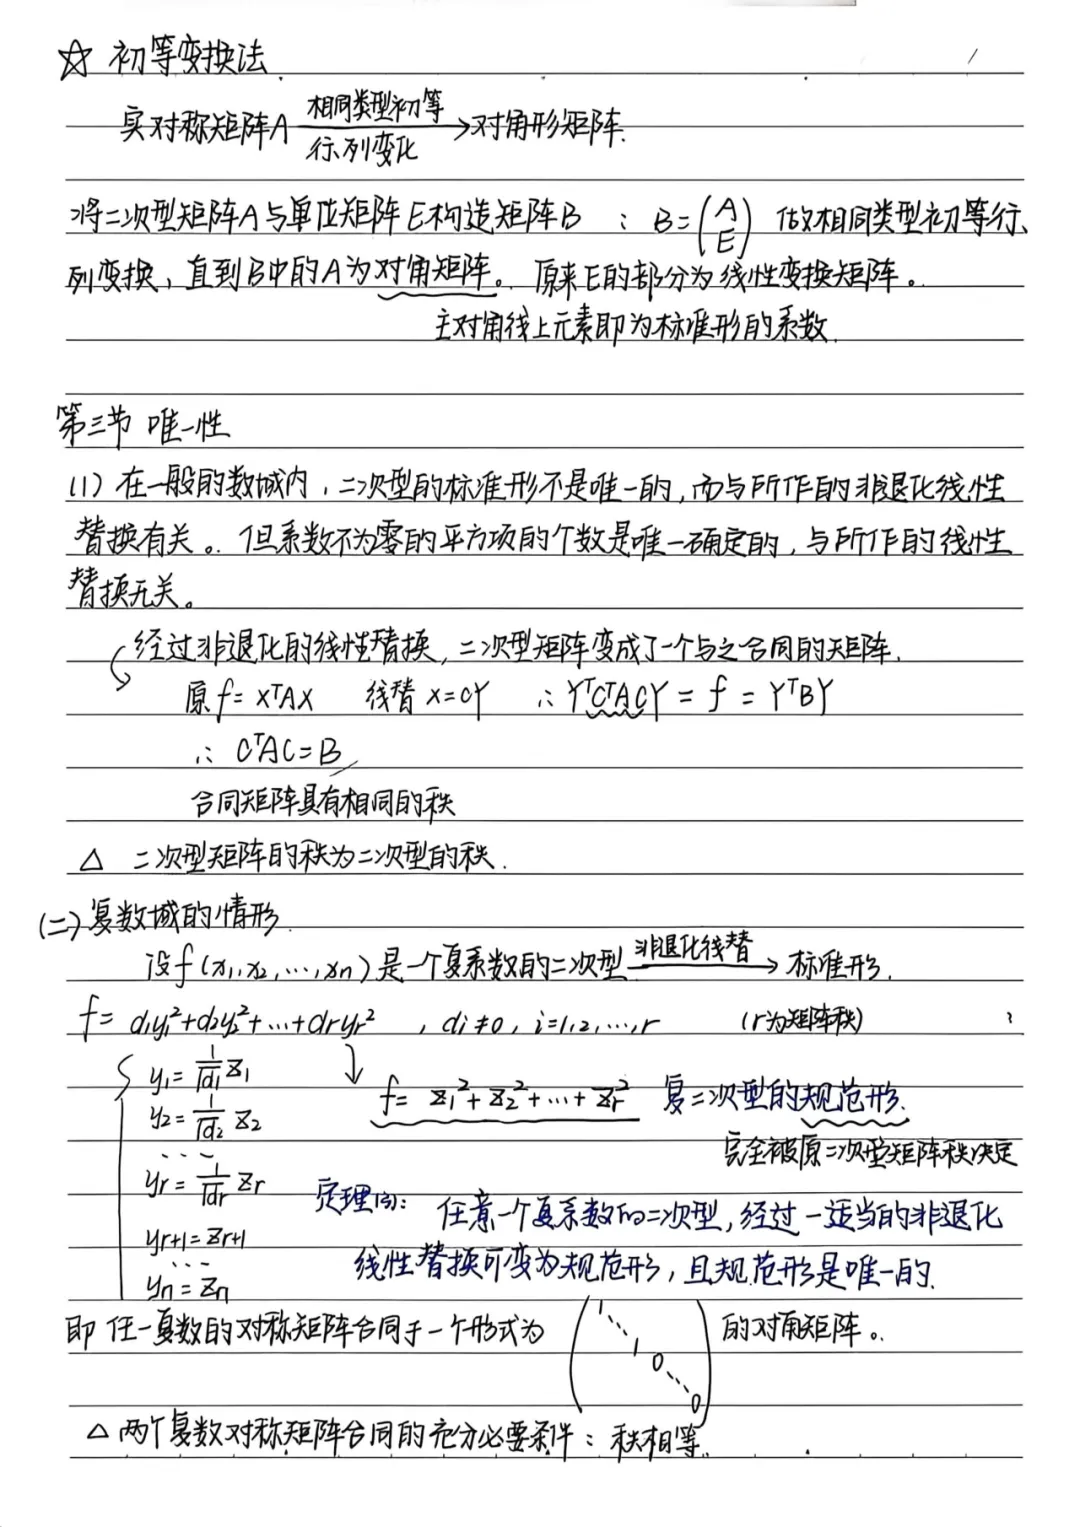 ☆ 初等变换法
实对称矩阵A 相同类型初等行、列变化 → 对角形矩阵.
将二次型矩阵A与单位矩阵E构造矩阵B : B=(A E) 做相同类型初等行、
列变换，直到B中的A为对角矩阵。原来E的部分为线性变换矩阵。
主对角线上元素即为标准形的系数.
第三节 唯一性
(1) 在一般的数域内，二次型的标准形不是唯一的，而与所作的非退化线性
替换有关。但系数不为零的平方项的个数是唯一确定的，与所作的线性
替换无关。
经过非退化的线性替换，二次型矩阵变成了一个与之合同的矩阵.
原 f=XᵀAX 线替 X=CY ∴ YᵀCᵀACY = f = YᵀBY
∴ CᵀAC=B
合同矩阵具有相同的秩
△ 二次型矩阵的秩为二次型的秩.
(二) 复数域的情形.
设f(x₁,x₂,…,xn)是一个复系数的二次型 非退化线替 → 标准形.
f= d₁y₁²+d₂y₂²+…+dryr² , di≠0, i=1,2,…,r (r为矩阵秩)
y₁= 1/√d₁ z₁
↓ f= z₁²+z₂²+…+zr² 复二次型的规范形.
y₂= 1/√d₂ z₂
完全被原二次型矩阵秩决定
…
yr= 1/√dr zr
定理(3): 任意一个复系数的二次型，经过一适当的非退化
yr+1=zr+1
线性替换可变为规范形，且规范形是唯一的.
…
yn=zn
即 任一复数的对称矩阵合同于一个形式为 (1 ⋱ 1 0 ⋱ 0) 的对角矩阵。
△ 两个复数对称矩阵合同的充分必要条件：秩相等.